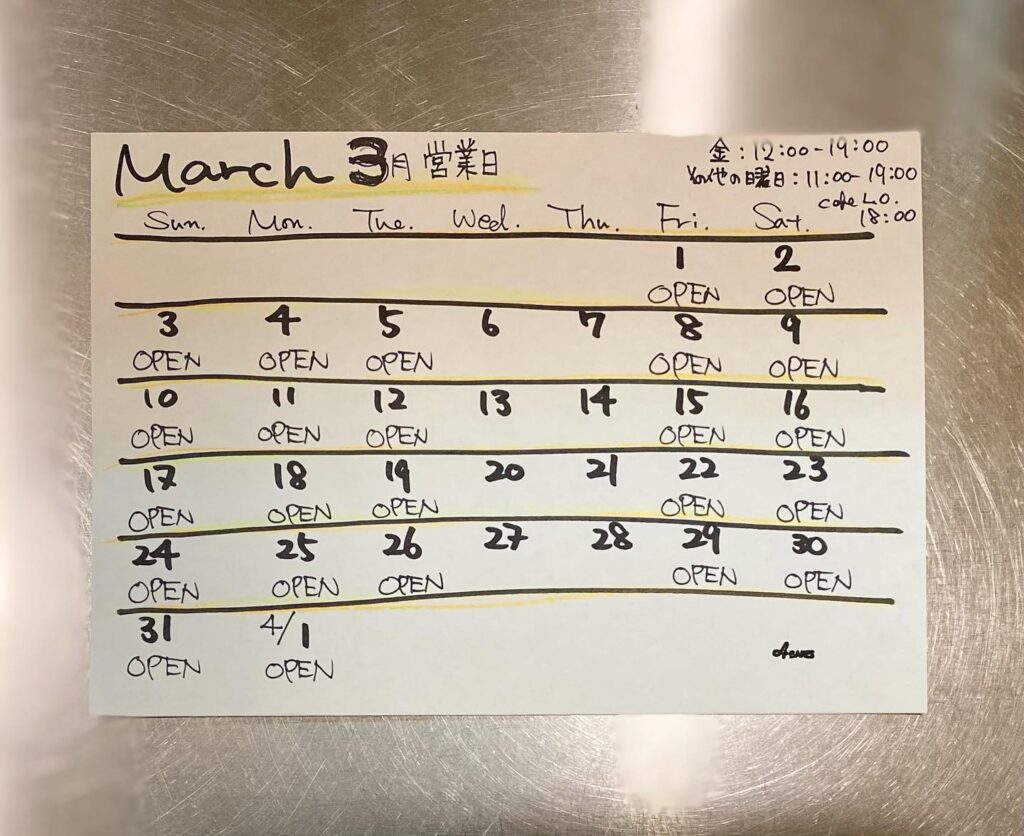 March 3月 営業日
金:12:00-19:00
その他の曜日:11:00-19:00
cafe L.O.
18:00
Sun. Mon. Tue. Wed. Thu. Fri. Sat.
1 2
OPEN OPEN
3 4 5 6 7 8 9
OPEN OPEN OPEN OPEN OPEN
10 11 12 13 14 15 16
OPEN OPEN OPEN OPEN OPEN
17 18 19 20 21 22 23
OPEN OPEN OPEN OPEN OPEN
24 25 26 27 28 29 30
OPEN OPEN OPEN OPEN OPEN
31 4/1
OPEN OPEN